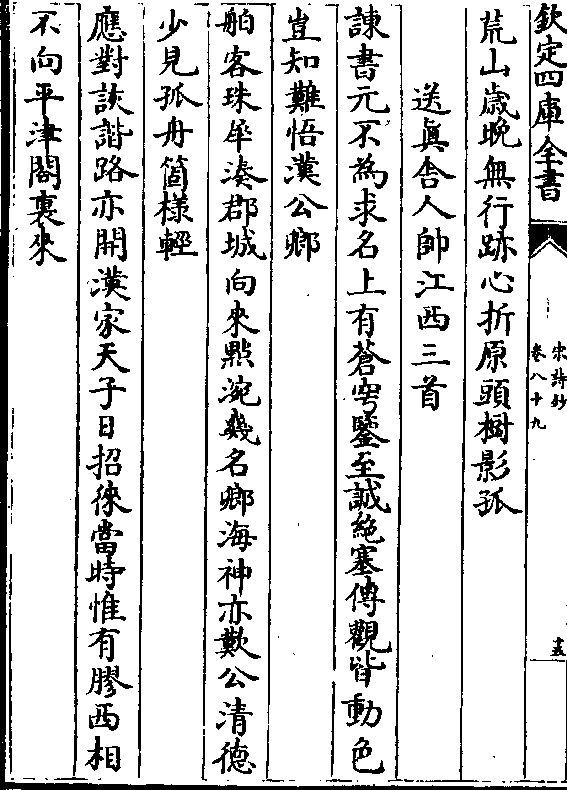 欽定四庫全書
宋詩鈔
卷八十九
荒山歳晚無行跡心折原頭樹影孤
送眞舍人帥江西三首
諫書元不為求名上有蒼穹鑒至誠絶塞傳觀皆動色
豈知難悟漢公卿
舶客珠犀湊郡城向來點涴幾名卿海神亦歎公清德
少見孤舟箇様輕
應對詼諧路亦開漢家天子日招徠當時惟有膠西相
不向平津閣裏來